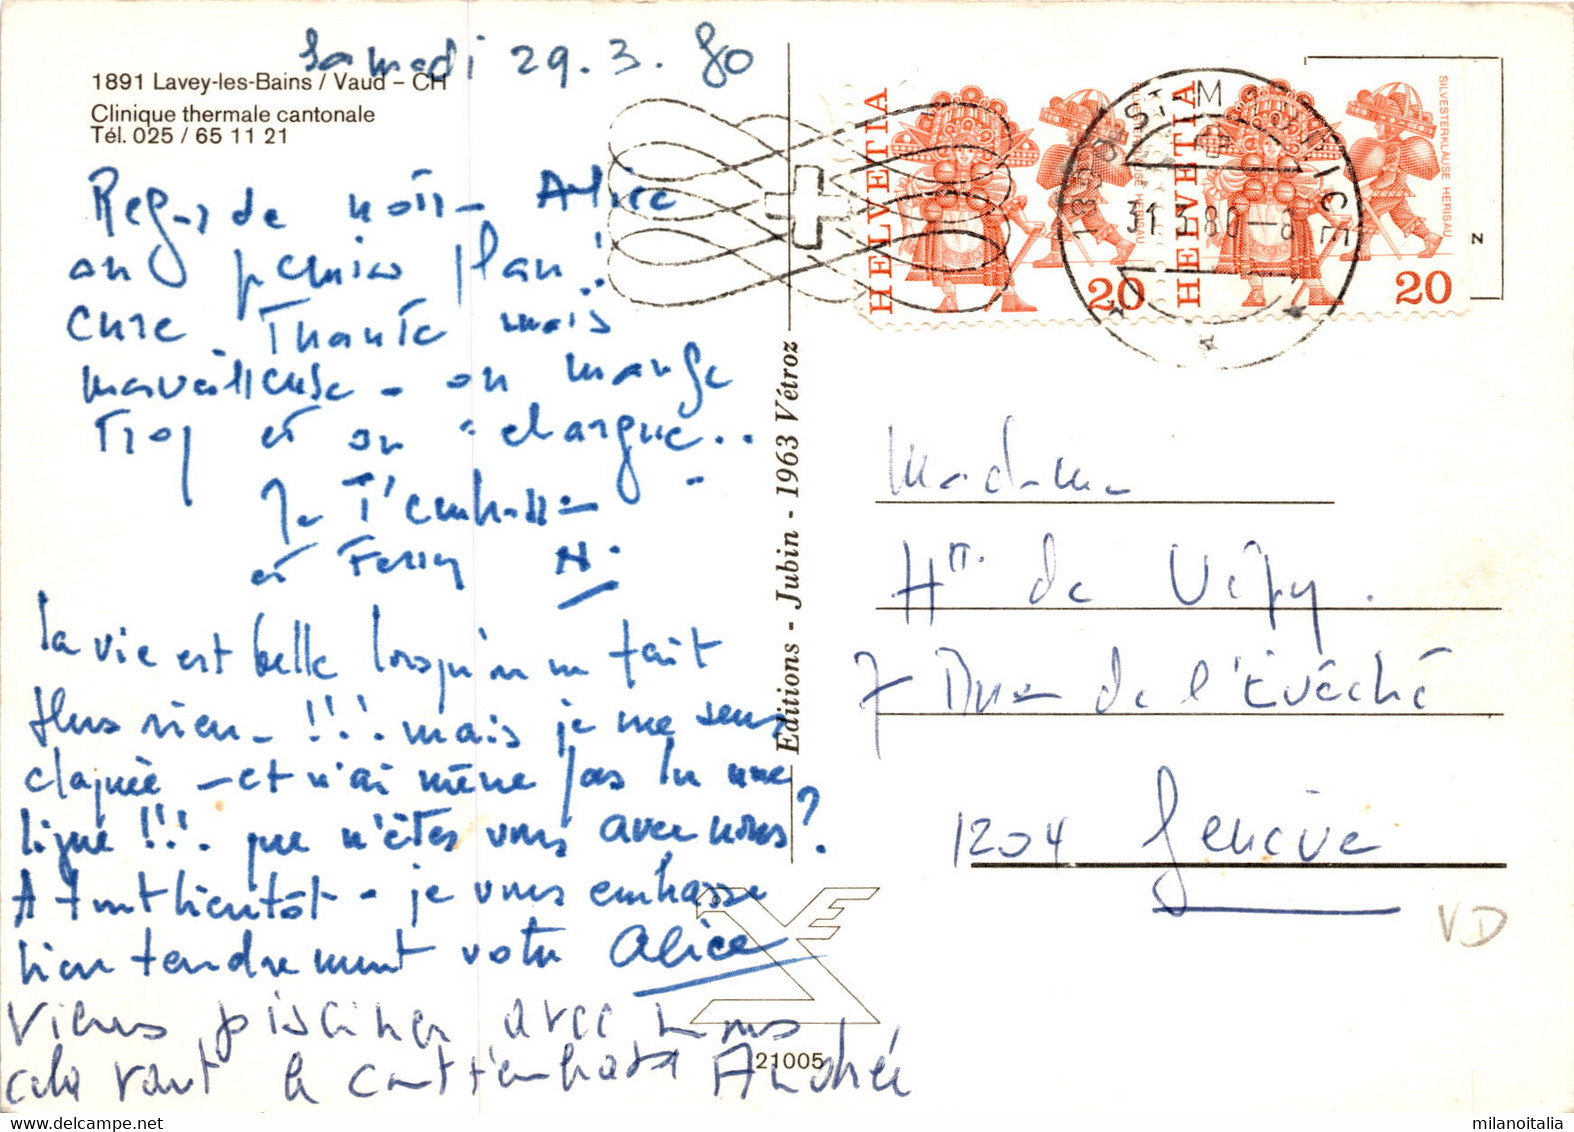 Samedi 29.3.80
1891 Lavey-les-Bains / Vaud – CH
Clinique thermale cantonale
Tél. 025 / 65 11 21
Regarde Alice
au premier plan!
cure Thante mais
merveilleuse – on mange
Trop et on "elargue..."
Je T'embrasse
et Ferry N.
la vie est belle lorsqu'on ne fait
plus rien – !!! mais je me sens
claquée – et n'ai même pas lu une
ligne !!! que n'êtes vous avec nous?
A tout bientôt – je vous embrasse
bien tendrement votre Alice
Viens pisciner avec nous
cela vaut le t'embrasse André
Editions - Jubin - 1963 Vétroz
21005
HELVETIA
SILVESTERKLÄUSE HERISAU
20
HELVETIA
SILVESTERKLÄUSE HERISAU
20
1890 ST-MAURICE
31.3.80–8
z
Madame
Htt. de Vepy.
7 Rue de l'Evêché
1204 Genève
VD
milanoitalia